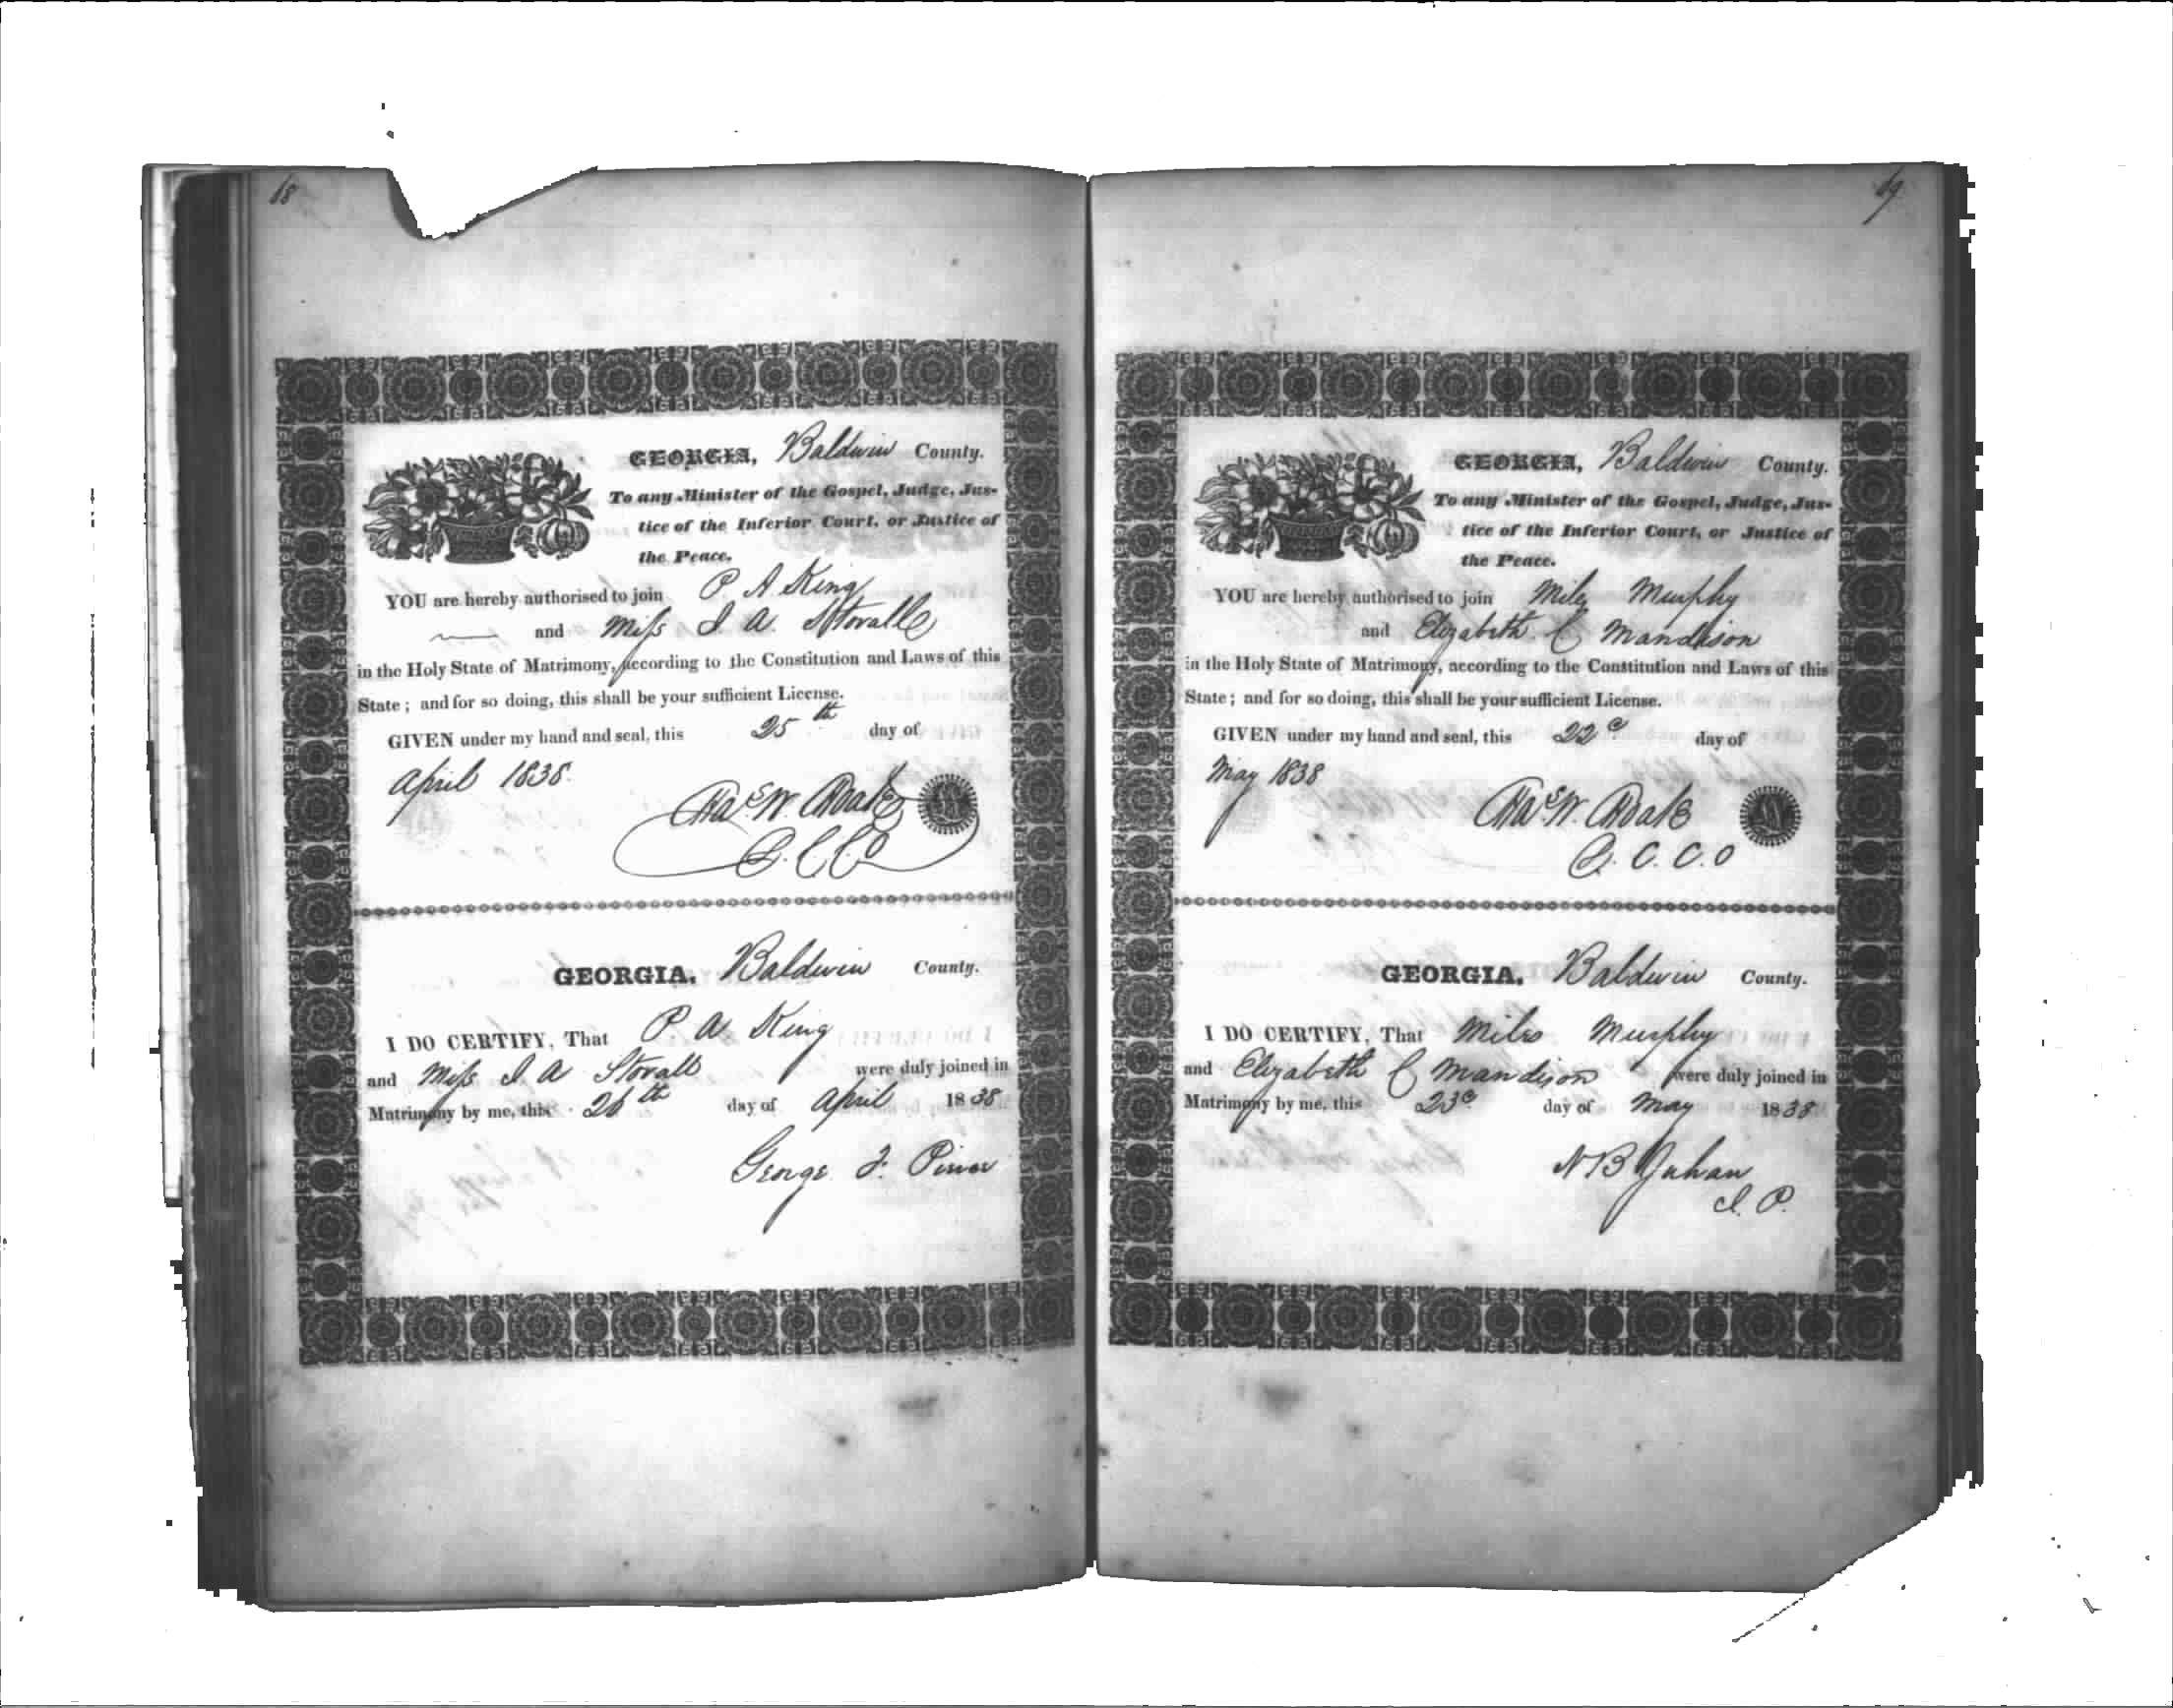 68
GEORGIA, Baldwin County.
To any Minister of the Gospel, Judge, Jus-
tice of the Inferior Court, or Justice of
the Peace.
YOU are hereby authorised to join P A King
and Miss J A Stovall
in the Holy State of Matrimony, according to the Constitution and Laws of this
State; and for so doing, this shall be your sufficient License.
GIVEN under my hand and seal, this 25th day of
April 1838
Chas W. Choate
C.C.O
GEORGIA, Baldwin County.
I DO CERTIFY, That P. A. King
and Miss J A Stovall were duly joined in
Matrimony by me, this 26th day of April 1838
George F. Pierce
69
GEORGIA, Baldwin County.
To any Minister of the Gospel, Judge, Jus-
tice of the Inferior Court, or Justice of
the Peace.
YOU are hereby authorised to join Miles Murphy
and Elizabeth C Mandison
in the Holy State of Matrimony, according to the Constitution and Laws of this
State; and for so doing, this shall be your sufficient License.
GIVEN under my hand and seal, this 22d day of
May 1838
Chas W. Choate
C. C. O
GEORGIA, Baldwin County.
I DO CERTIFY, That Miles Murphy
and Elizabeth C Mandison were duly joined in
Matrimony by me, this 23d day of May 1838
N B Juhan
J. P.